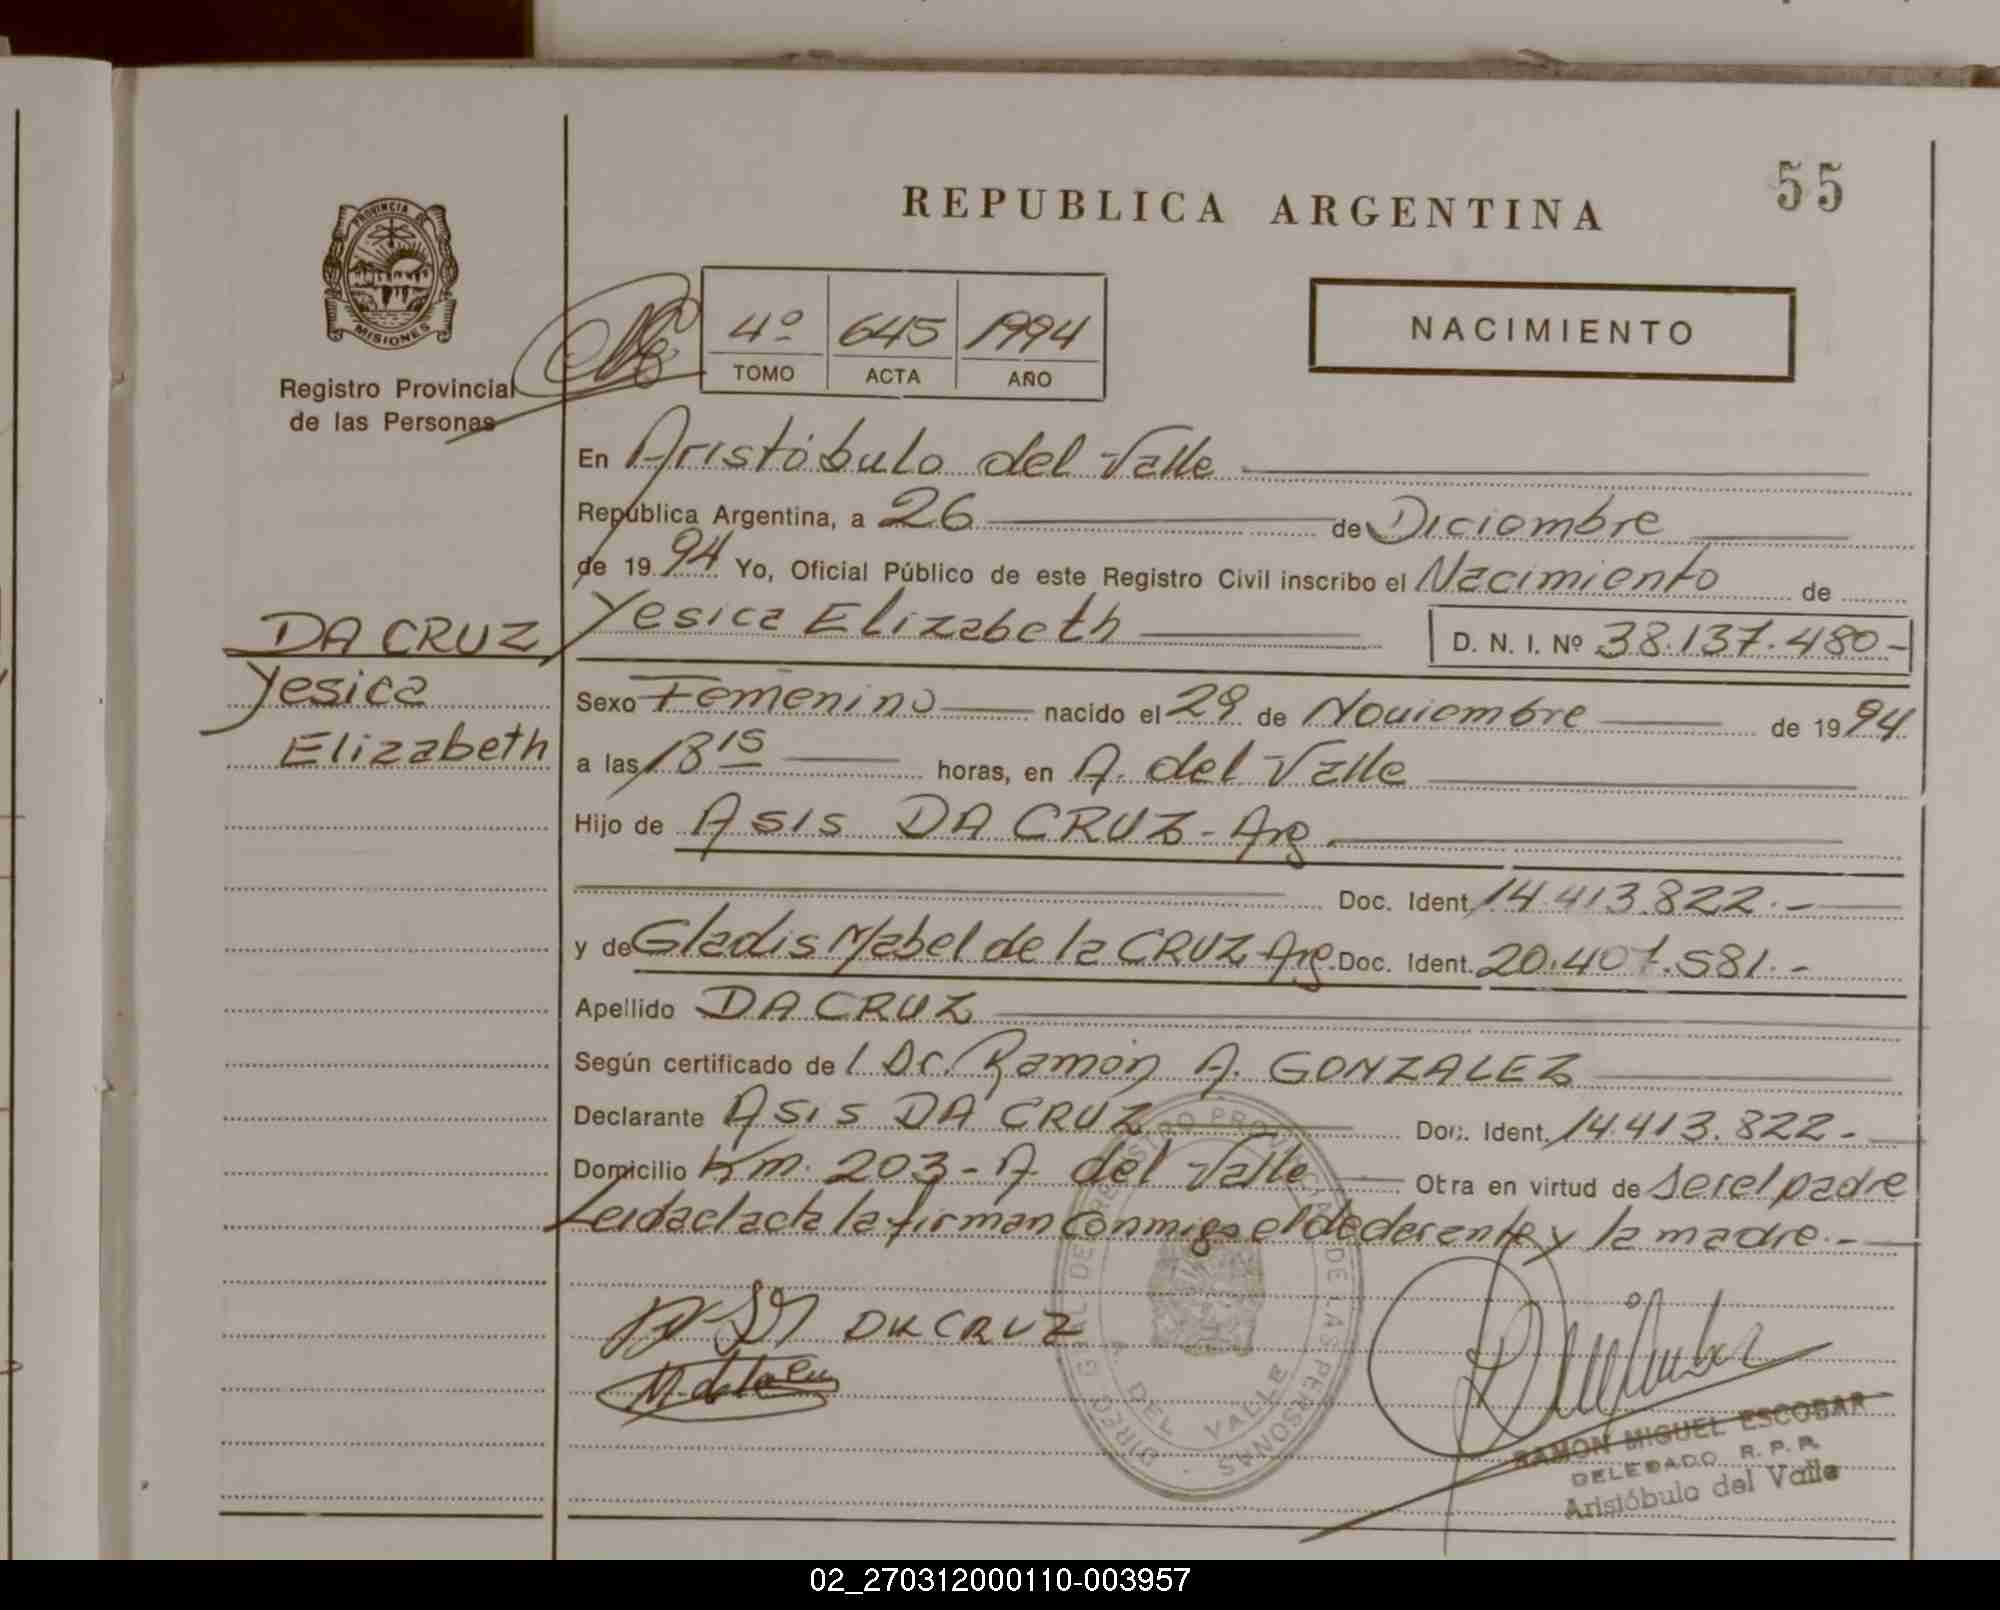 55
REPUBLICA ARGENTINA
PROVINCIA DE
MISIONES
Registro Provincial
de las Personas
4º 645 1994
TOMO ACTA AÑO
NACIMIENTO
En Aristóbulo del Valle
República Argentina, a 26 de Diciembre
de 1994 Yo, Oficial Público de este Registro Civil inscribo el Nacimiento de
Yesica Elizabeth D. N. I. Nº 38.137.480-
DA CRUZ
Yesica
Elizabeth
Sexo Femenino nacido el 29 de Noviembre de 1994
a las 18 15 horas, en A. del Valle
Hijo de Asis DA CRUZ - Arg
Doc. Ident. 14.413.822.-
y de Gladis Mabel de la CRUZ Arg. Doc. Ident. 20.407.581.-
Apellido DA CRUZ
Según certificado de l Dr. Ramón A. GONZALEZ
Declarante Asis DA CRUZ Doc. Ident. 14.413.822-
Domicilio Km. 203 - A. del Valle Obra en virtud de ser el padre
Leida el acta la firman conmigo el declarante y la madre.-
DA CRUZ
M. de la Cru
DEL VALLE
RAMON MIGUEL ESCOBAR
DELEGADO R. P. P.
Aristóbulo del Valle
02_270312000110-003957